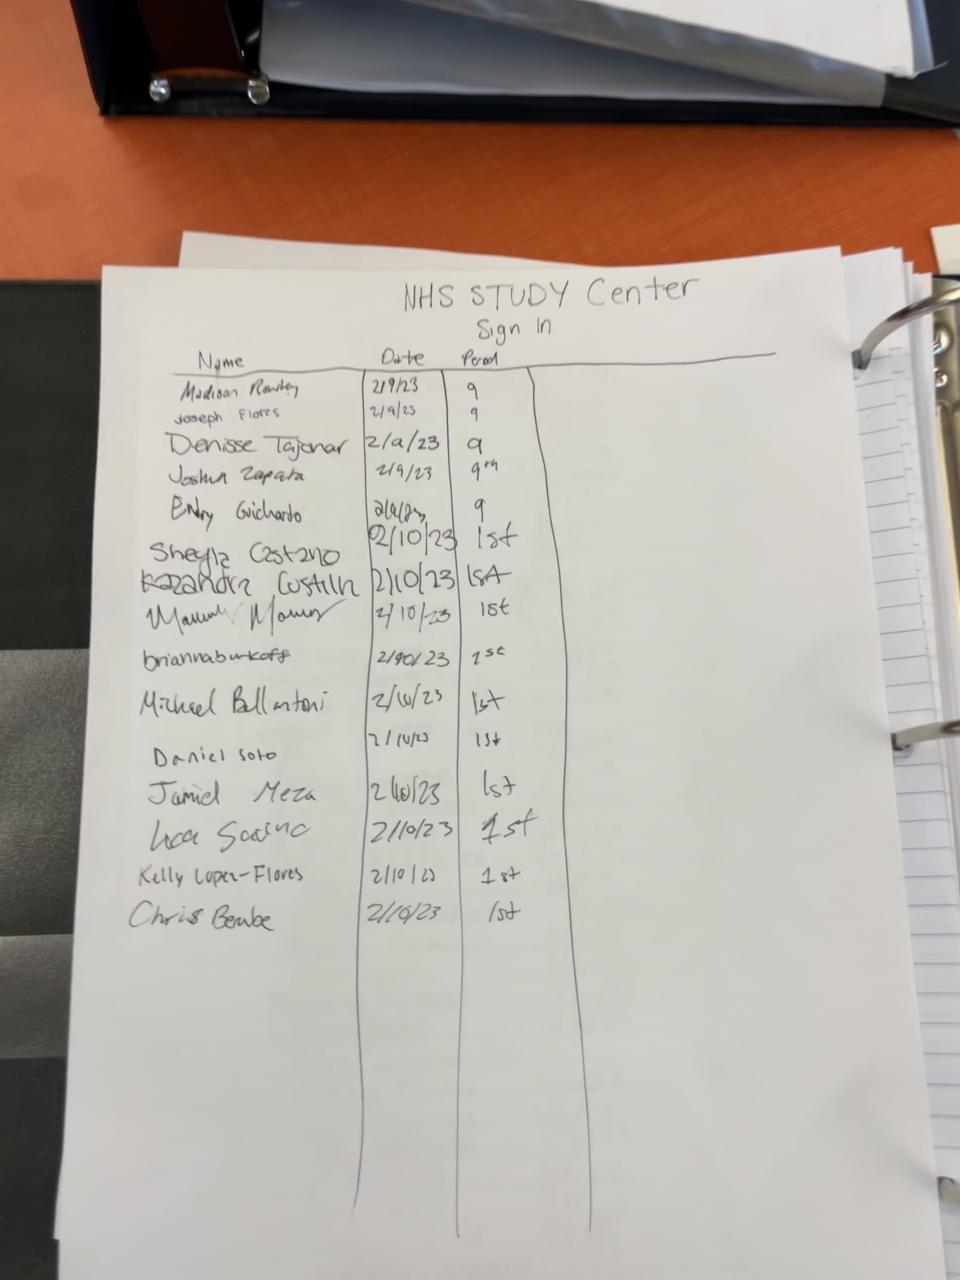 NHS STUDY Center
Sign In
Name Date Period
Madison 2/9/23 9
Joseph Flores 2/9/23 9
Denisse Tajonar 2/9/23 9
Joshua Zapata 2/9/23 9th
Guichardo 2/9/23 9
Sheyla Castano 2/10/23 1st
Kazandra 2/10/23 1st
2/10/23 1st
briannaburkoff 2/10/23 1st
Michael Bellantoni 2/10/23 1st
Daniel Soto 2/10/23 1st
Jamiel Meza 2/10/23 1st
Luca 2/10/23 1st
Kelly Lopez-Flores 2/10/23 1st
Chris 2/10/23 1st